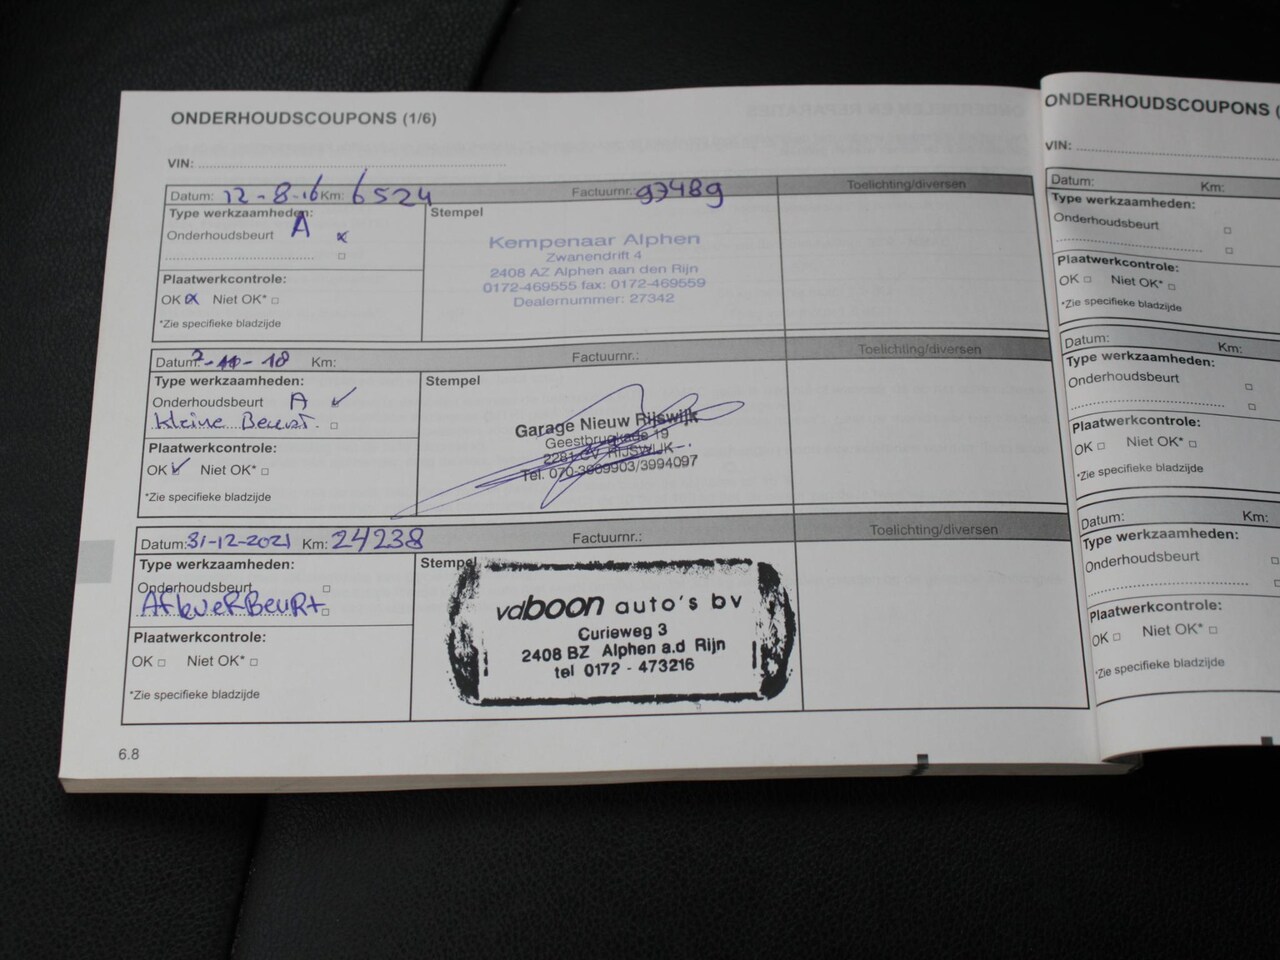 ONDERHOUDSCOUPONS (1/6)
VIN:
Datum: 12-8-16 Km: 6524 Factuurnr.: 97489 Toelichting/diversen
Type werkzaamheden: Stempel
Onderhoudsbeurt A x
Kempenaar Alphen
Zwanendrift 4
2408 AZ Alphen aan den Rijn
0172-469555 fax: 0172-469559
Dealernummer: 27342
Plaatwerkcontrole:
OK x Niet OK* □
*Zie specifieke bladzijde
Datum: 7-11-18 Km: Factuurnr.: Toelichting/diversen
Type werkzaamheden: Stempel
Onderhoudsbeurt A ✓
kleine Beurt. □
Garage Nieuw Rijswijk
Geestbrugkade 19
2281 CV RIJSWIJK
Tel. 070-3989903/3994097
Plaatwerkcontrole:
OK ✓ Niet OK* □
*Zie specifieke bladzijde
Datum: 31-12-2021 Km: 24238 Factuurnr.: Toelichting/diversen
Type werkzaamheden: Stempel
Onderhoudsbeurt □
AfleverBeurt □
vdboon auto's bv
Curieweg 3
2408 BZ Alphen a.d Rijn
tel 0172 - 473216
Plaatwerkcontrole:
OK □ Niet OK* □
*Zie specifieke bladzijde
6.8
ONDERHOUDSCOUPONS (
VIN:
Datum: Km:
Type werkzaamheden:
Onderhoudsbeurt □
□
Plaatwerkcontrole:
OK □ Niet OK* □
*Zie specifieke bladzijde
Datum: Km:
Type werkzaamheden:
Onderhoudsbeurt □
□
Plaatwerkcontrole:
OK □ Niet OK* □
*Zie specifieke bladzijde
Datum: Km:
Type werkzaamheden:
Onderhoudsbeurt □
□
Plaatwerkcontrole:
OK □ Niet OK* □
*Zie specifieke bladzijde